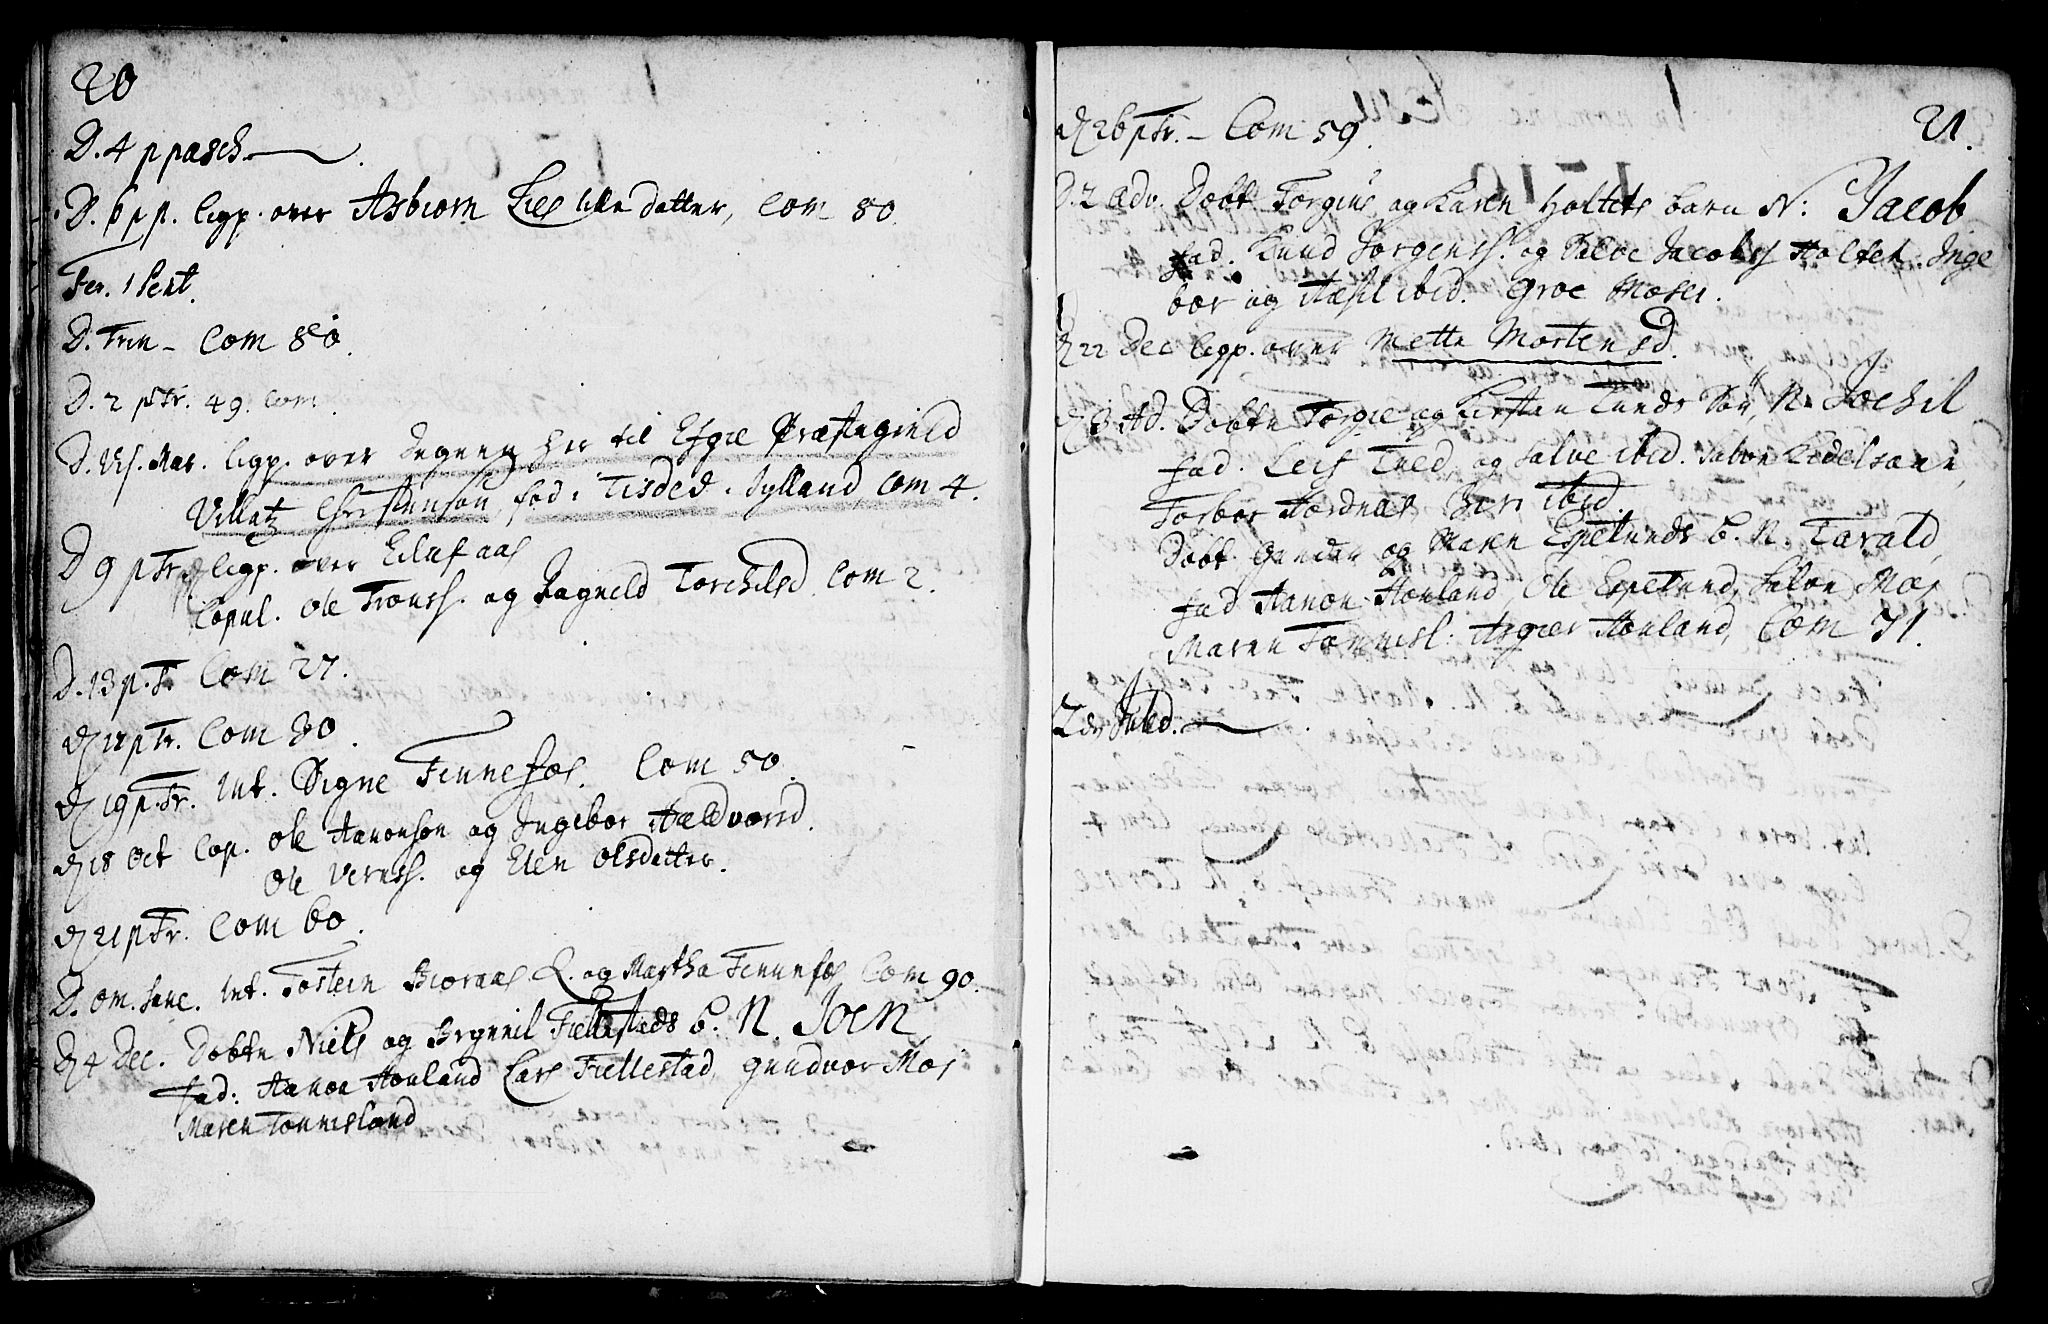 20
D. 4 p pasch.
D. 6 p p. ligp. over Asbiorn Lies lille datter, Com 80.
Fer. 1 Pent.
D. Trin - Com 80.
D. 2 p Tr. 49. Com.
D. Vis. Mar. ligp. over Degnen her til Efgie Præstegield
Villatz Christenson, fød i Tisded i Jylland Com 4.
D 9 p Tr. ligp. over Eiluf aas
Copul. Ole Tronss. og Ragneld Torchilsd. Com 2.
D. 13 p. Tr Com 27.
p Tr. Com 30.
19 p. Tr. Int. Signe Fennefos. Com 50.
18 Oct Cop. Ole Aanonson og Ingebor Haldvorsd.
Ole Verness. og Elen Olsdatter.
21 p Tr. Com 60.
D. om. sanc. Int. Tostein og Martha Fennefos Com 90.
4 Dec. Dobte Niels og Brynnil Fiellestads b. N. Joen
fad: Aanon Honland Lars Fiellestad, Gundvor Moes
Maren Tonnesland
21.
26 p Tr. - Com 59.
D. 2 Adv. Dobt Torgius og Karen Holtets barn N: Jacob
fad. Knud Jorgenss. og Salve Jacobss Holtet. Inge
bor og Aasil ibid. Groe Moses.
22 Dec ligp. over Mette Mortensd.
3 Ad. Dobte Torgie og Kirsten Tveds Søn, N. Jochil
fad. Leif Tved, og Salve ibid. Salve
Torbor Hordnes Siri ibid.
Dobt Gunder og Maren Espetunds b. N. Tarald,
fad Aanon Honland, Ole Espetund, Salve Moes
Maren Tonnesl: Asgier Honland, Com 71.
2 dn Juled.